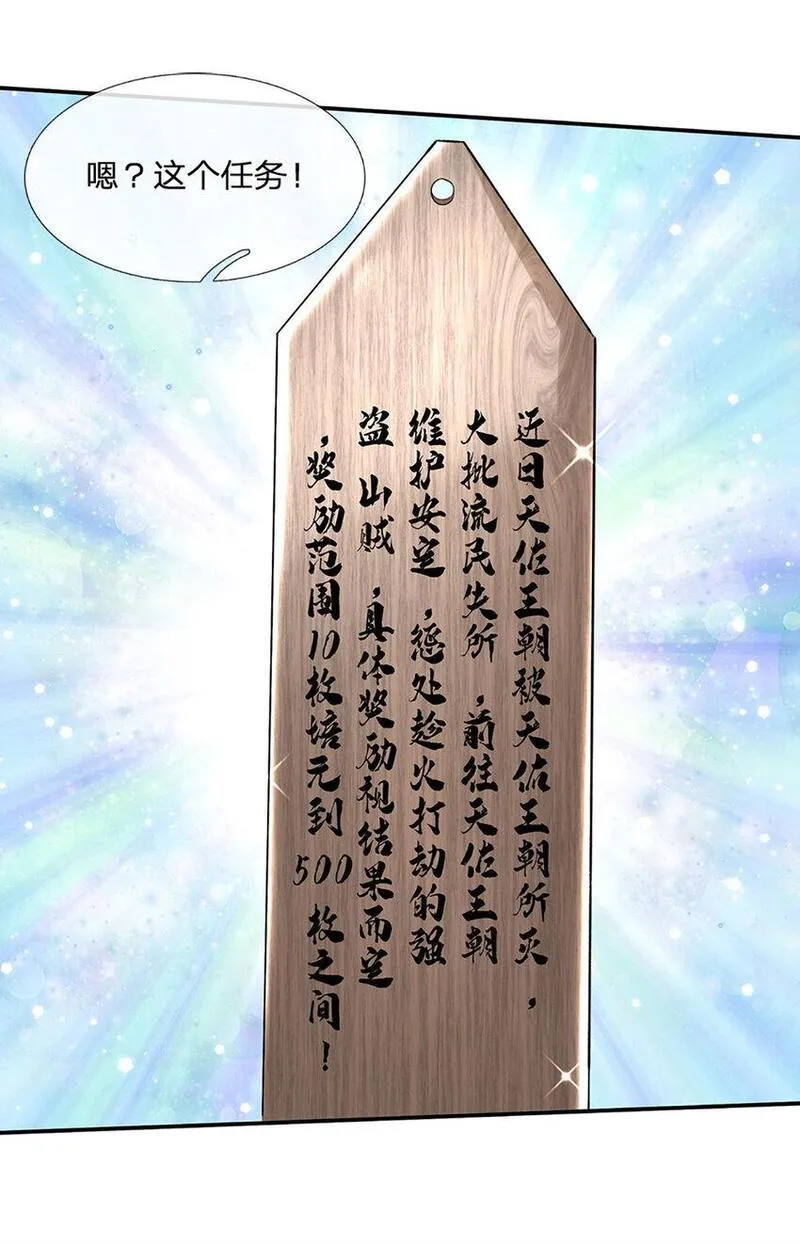 嗯？这个任务！
近日天佐王朝被天佑王朝所灭，
大批流民失所，前往天佐王朝
维护安定，惩处趁火打劫的强
盗山贼，具体奖励视结果而定
，奖励范围10枚培元到500枚之间！